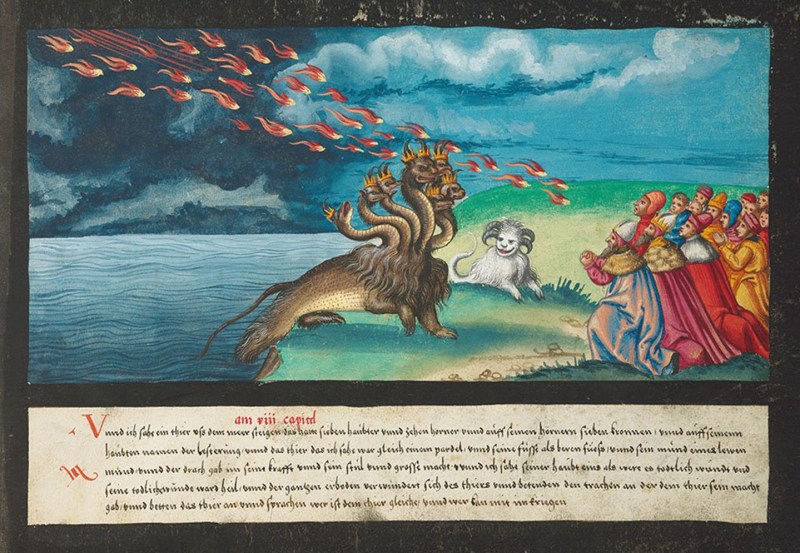 am xiii capitel
Vnnd ich sahe ein thier vß dem meer steigen das hatt sieben haubter vnnd zehen horner vnnd auff seinen hörnern sieben kronnen / vnnd auff seinenn
haubten namen der lesterüng / vnnd das thier das ich sahe war gleich einem pardel / vnnd seine füsse als beren füeß / vnnd sein münd eines lewen
münd / vnnd der drach gab im seine krafft vnnd sein stül vnnd grosse macht / vnnd ich sahe seiner haubt eins als were es todtlich wundt vnd
seine todliche wünde ward heil / vnnd der gantzen erboden verwundert sich des thiers vnnd betenden den trachen an der dem thier sein macht
gab / vnnd betten das thier an vnnd sprachen wer ist dem thier gleiche / vnnd wer kan mit im kriegen